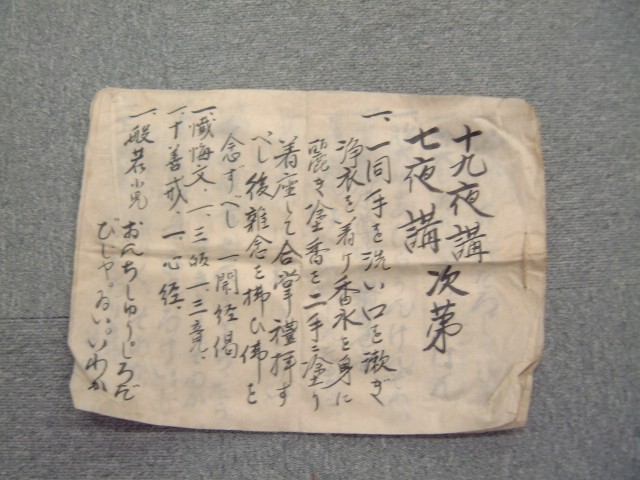 十九夜講
七夜講 次第
一、一同手を洗い口を漱ぎ
浄衣を着り香水を身に
麗き塗香を二手ニ塗り
着座して合掌禮拝す
べし後雑念を拂ひ佛を
念ずべし 一開経偈
一、懺悔文、一、三帰、一、三竟、
一、十善戒、一、心経、
一、般若
おんちしゅりじろだ
びじや。ゐい。いわか